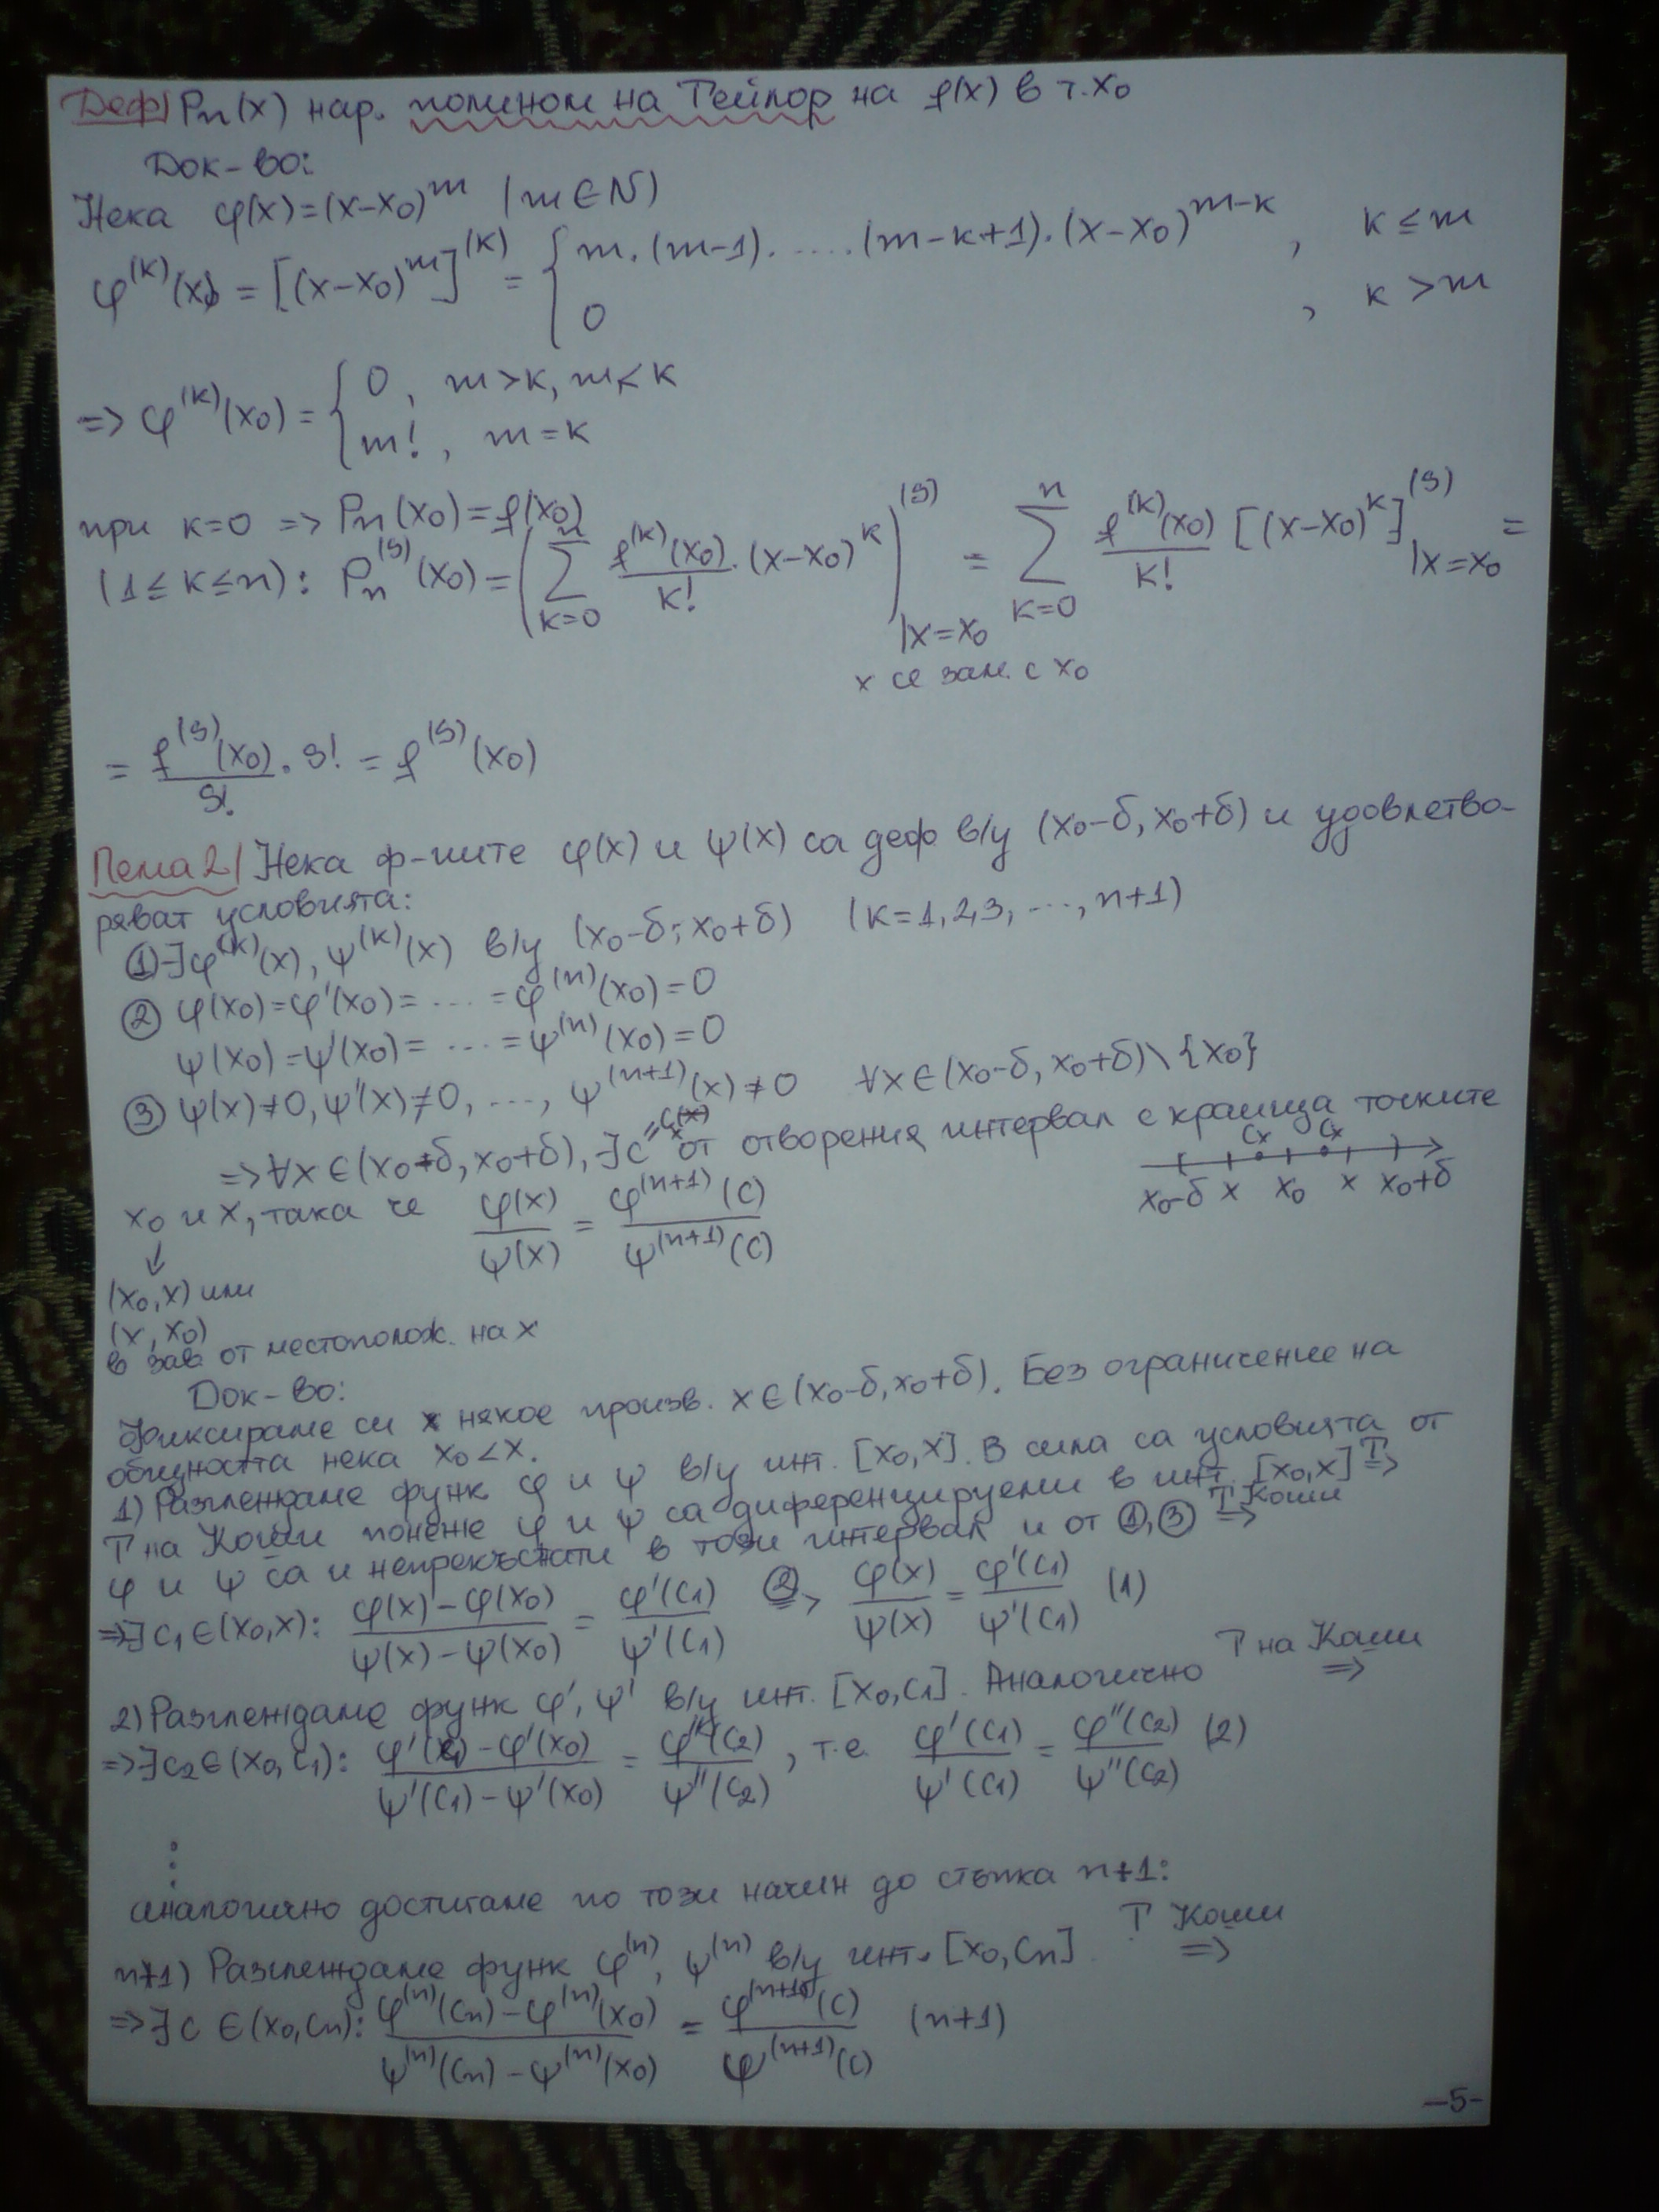 Деф| Pn(x) нар. полином на Тейлор на f(x) в т. x₀
Док-во:
Нека φ(x)=(x-x₀)^m (m∈N)
φ^(k)(x) = [(x-x₀)^m]^(k) = { m.(m-1). .... (m-k+1).(x-x₀)^(m-k) , k ≤ m
0 , k > m
=> φ^(k)(x₀) = { 0, m>k, m<k
m!, m=k
при k=0 => Pn(x₀)=f(x₀)
(1≤k≤n): Pn^(s)(x₀) = (∑_{k=0}^{n} f^(k)(x₀)/k! . (x-x₀)^k)^(s) |x=x₀ = ∑_{k=0}^{n} f^(k)(x₀)/k! [(x-x₀)^k]^(s) |x=x₀ =
x се зам. с x₀
= f^(s)(x₀)/s! . s! = f^(s)(x₀)
Лема 2| Нека ф-иите φ(x) и ψ(x) са деф в/у (x₀-δ, x₀+δ) и удовлетво-
ряват условията:
① ∃φ^(k)(x), ψ^(k)(x) в/у (x₀-δ; x₀+δ) (k=1,2,3, ..., n+1)
② φ(x₀)=φ'(x₀)= .... =φ^(n)(x₀)=0
ψ(x₀)=ψ'(x₀)= .... =ψ^(n)(x₀)=0
③ ψ(x)≠0, ψ'(x)≠0, ..., ψ^(n+1)(x)≠0 ∀x∈(x₀-δ, x₀+δ)\{x₀}
=> ∀x∈(x₀-δ, x₀+δ), ∃c=c(x) от отворения интервал с краища точките
x₀ и x, така че φ(x)/ψ(x) = φ^(n+1)(c)/ψ^(n+1)(c)
cx cx
x₀-δ x x₀ x x₀+δ
↓
(x₀,x) или
(x, x₀)
в зав. от местополож. на x
Док-во:
Фиксираме си някое произв. x∈(x₀-δ, x₀+δ). Без ограничение на
общността нека x₀<x.
1) Разглеждаме функ φ и ψ в/у инт. [x₀,x]. В сила са условията от
Т на Коши понеже φ и ψ са диференцируеми в инт. [x₀,x] T=>
φ и ψ са и непрекъснати в този интервал и от ①,③ Т Коши =>
=>∃ c₁∈(x₀,x): (φ(x)-φ(x₀))/(ψ(x)-ψ(x₀)) = φ'(c₁)/ψ'(c₁) ②=> φ(x)/ψ(x) = φ'(c₁)/ψ'(c₁) (1)
2) Разглеждаме функ φ', ψ' в/у инт. [x₀,c₁]. Аналогично Т на Коши =>
=>∃c₂∈(x₀,c₁): (φ'(c₁)-φ'(x₀))/(ψ'(c₁)-ψ'(x₀)) = φ''(c₂)/ψ''(c₂), т.е. φ'(c₁)/ψ'(c₁) = φ''(c₂)/ψ''(c₂) (2)
⋮
аналогично достигаме по този начин до стъпка n+1:
n+1) Разглеждаме функ φ^(n), ψ^(n) в/у инт. [x₀,cn]. Т Коши =>
=>∃c ∈(x₀,cn): (φ^(n)(cn)-φ^(n)(x₀))/(ψ^(n)(cn)-ψ^(n)(x₀)) = φ^(n+1)(c)/ψ^(n+1)(c) (n+1)
-5-